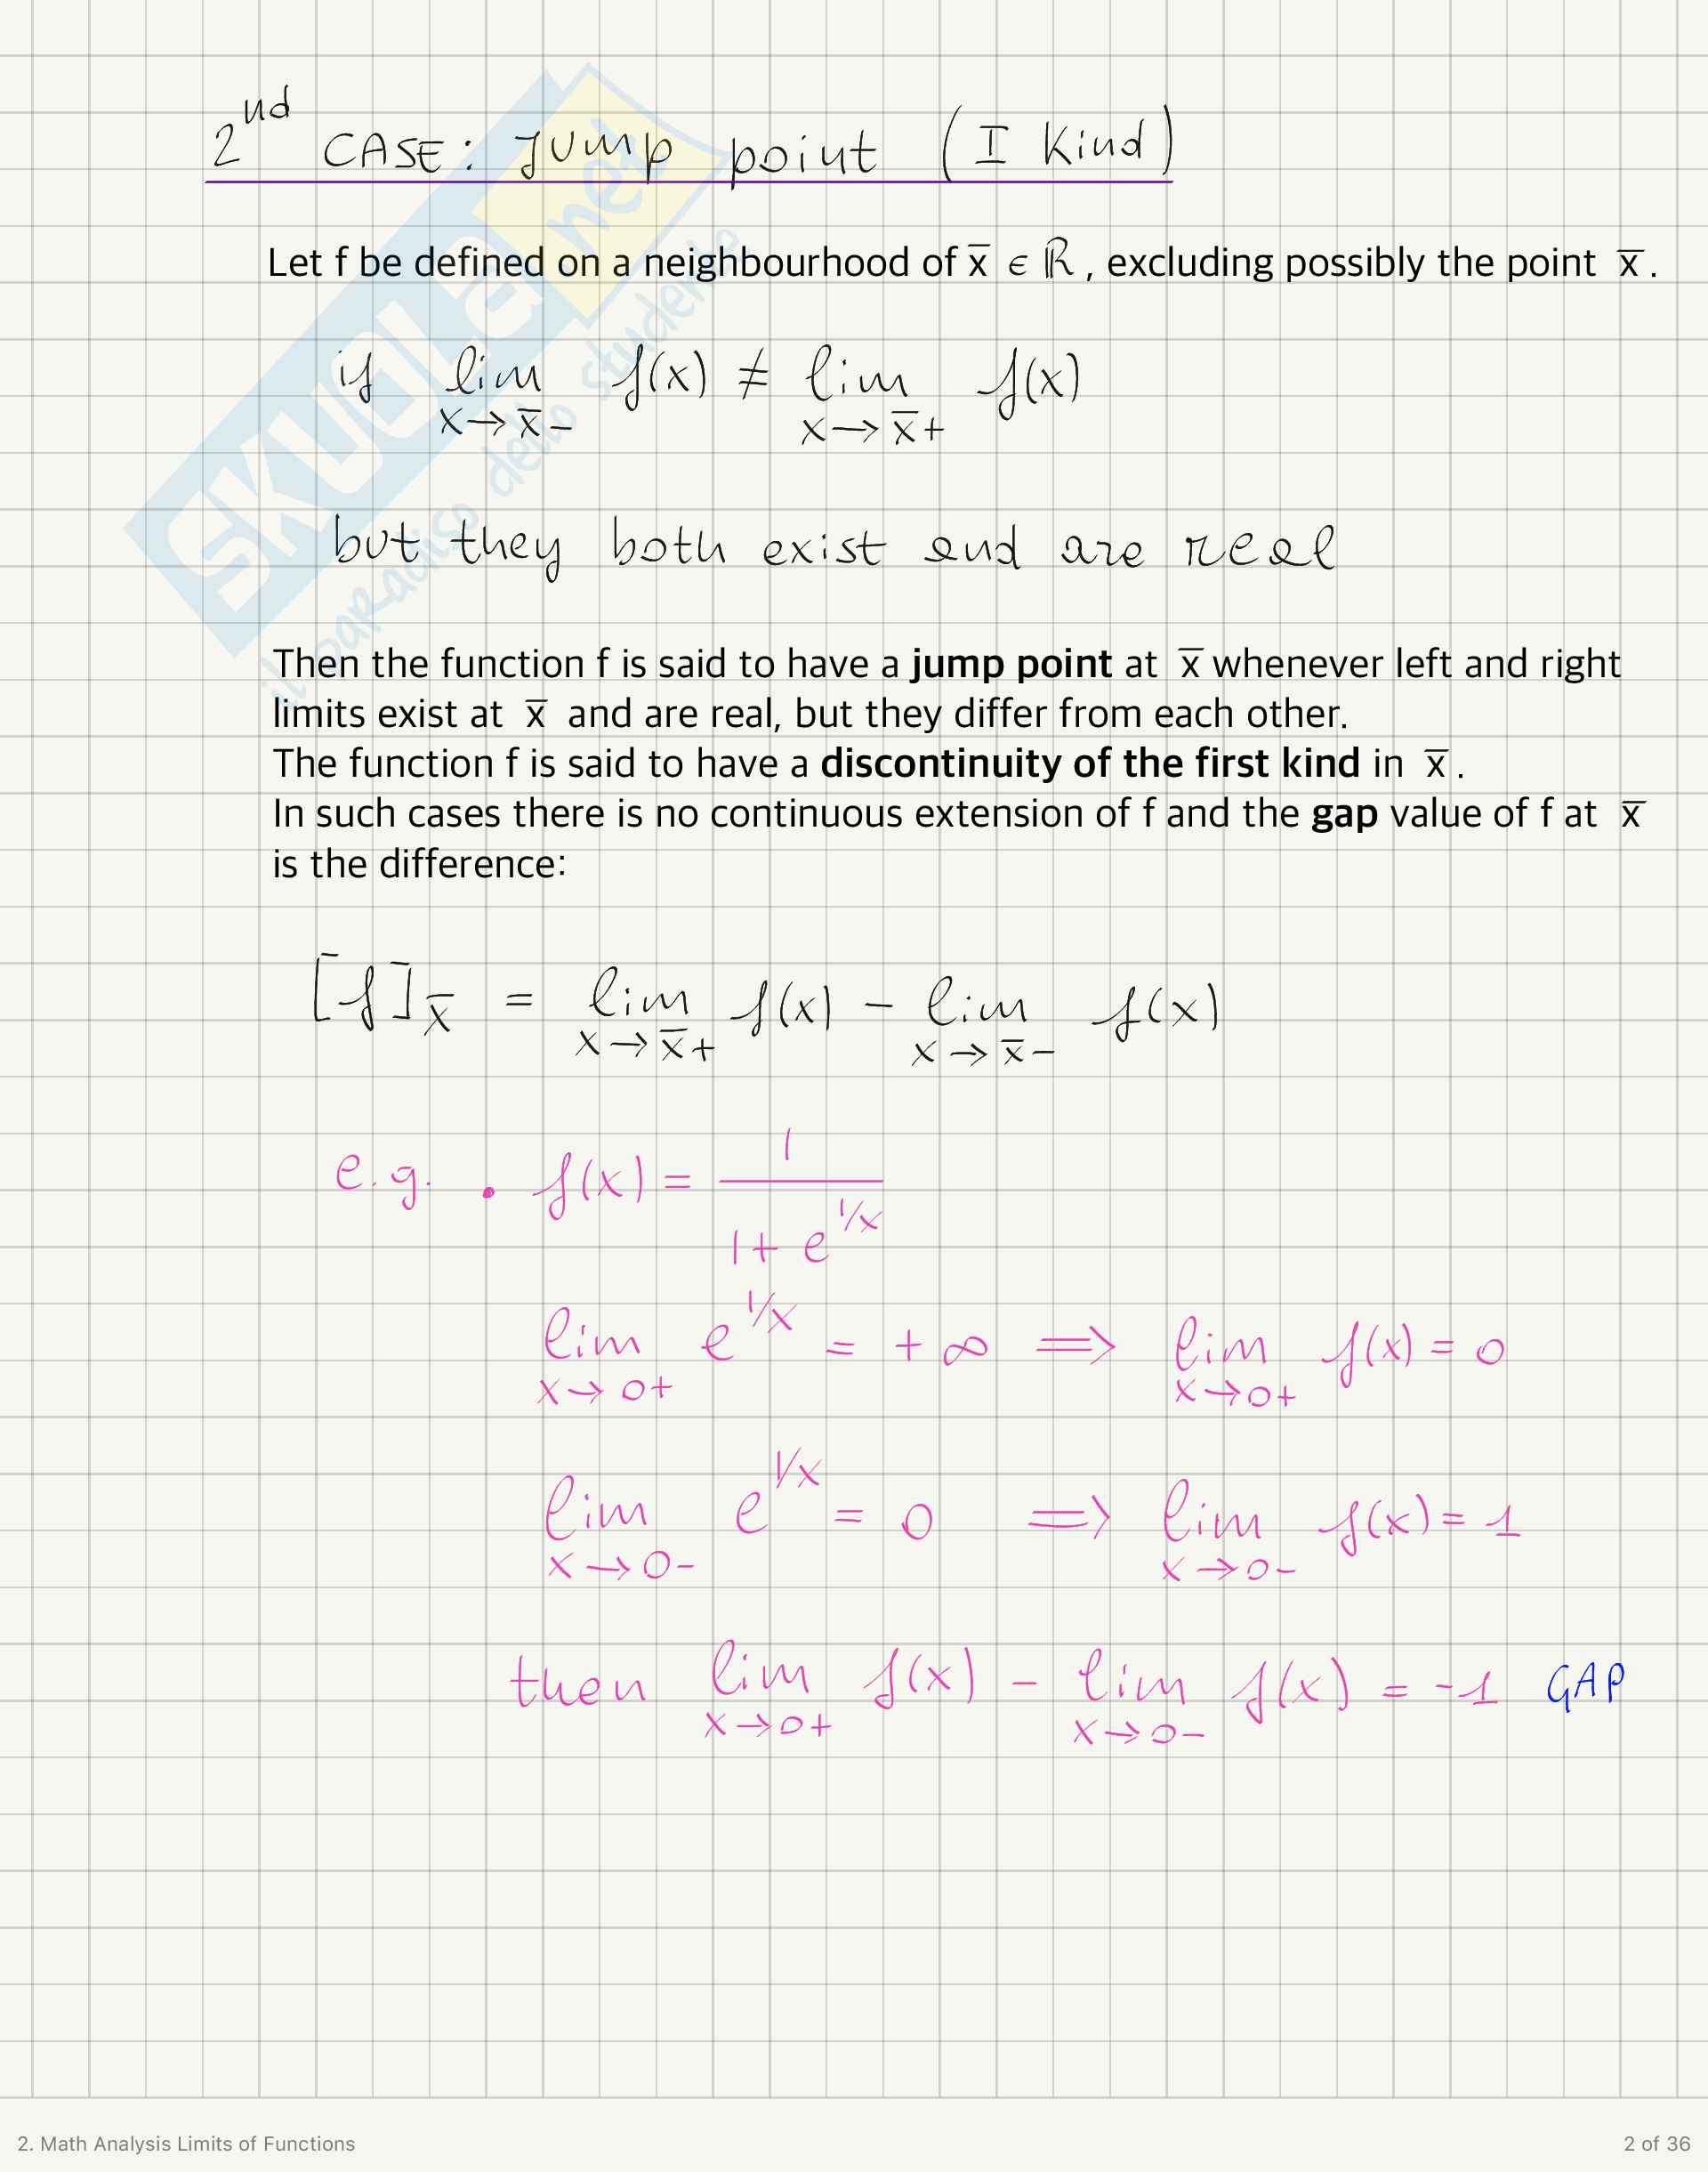 2nd CASE: Jump point (I Kind)
Let f be defined on a neighbourhood of x̅ ∈ ℝ, excluding possibly the point x̅.
if lim f(x) ≠ lim f(x)
x→x̅- x→x̅+
but they both exist and are real
Then the function f is said to have a jump point at x̅ whenever left and right
limits exist at x̅ and are real, but they differ from each other.
The function f is said to have a discontinuity of the first kind in x̅.
In such cases there is no continuous extension of f and the gap value of f at x̅
is the difference:
[f]x̅ = lim f(x) - lim f(x)
x→x̅+ x→x̅-
e.g. • f(x) = 1
1+ e^1/x
lim e^1/x = +∞ ⟹ lim f(x) = 0
x→0+ x→0+
lim e^1/x = 0 ⟹ lim f(x) = 1
x→0- x→0-
then lim f(x) - lim f(x) = -1 GAP
x→0+ x→0-
SKUOLA.net
il paradiso dello studente
2. Math Analysis Limits of Functions
2 of 36